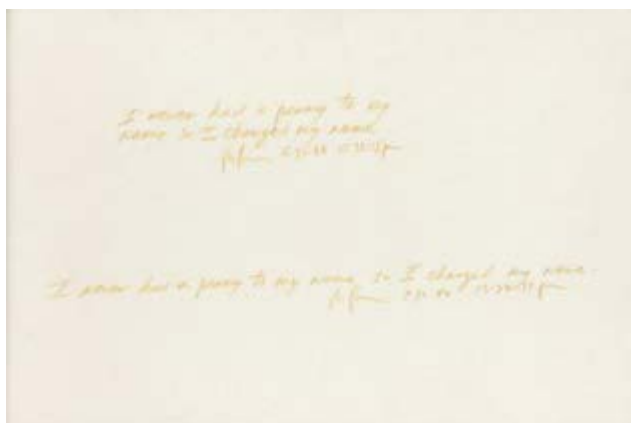 I never had a penny to my
name so I changed my name.
I never had a penny to my name, so I changed my name.